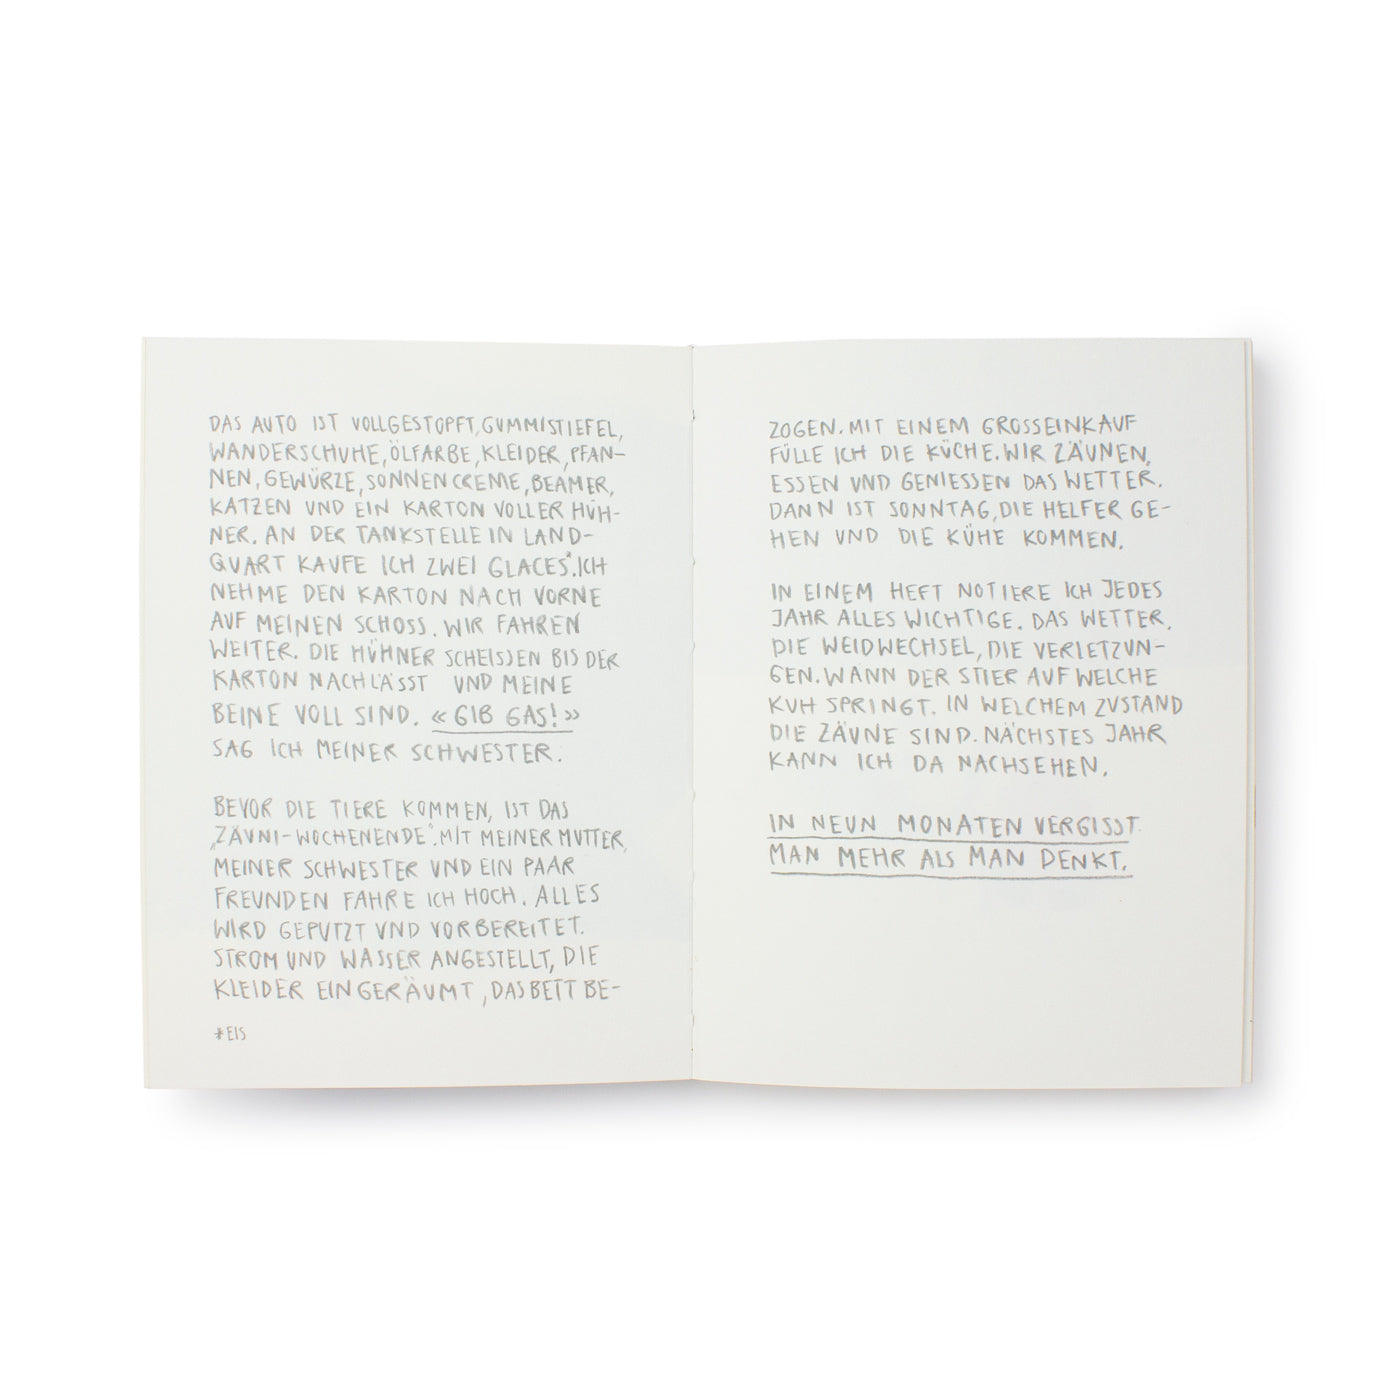 DAS AUTO IST VOLLGESTOPFT, GUMMISTIEFEL,
WANDERSCHUHE, ÖLFARBE, KLEIDER, PFAN-
NEN, GEWÜRZE, SONNENCREME, BEAMER,
KATZEN UND EIN KARTON VOLLER HÜH-
NER. AN DER TANKSTELLE IN LAND-
QUART KAUFE ICH ZWEI GLACES*. ICH
NEHME DEN KARTON NACH VORNE
AUF MEINEN SCHOSS. WIR FAHREN
WEITER. DIE HÜHNER SCHEISSEN BIS DER
KARTON NACHLÄSST UND MEINE
BEINE VOLL SIND. «GIB GAS!»
SAG ICH MEINER SCHWESTER.
BEVOR DIE TIERE KOMMEN, IST DAS
„ZÄUNI-WOCHENENDE“. MIT MEINER MUTTER,
MEINER SCHWESTER UND EIN PAAR
FREUNDEN FAHRE ICH HOCH. ALLES
WIRD GEPUTZT UND VORBEREITET.
STROM UND WASSER ANGESTELLT, DIE
KLEIDER EINGERÄUMT, DAS BETT BE-
*EIS
ZOGEN. MIT EINEM GROSSEINKAUF
FÜLLE ICH DIE KÜCHE. WIR ZÄUNEN,
ESSEN UND GENIESSEN DAS WETTER.
DANN IST SONNTAG, DIE HELFER GE-
HEN UND DIE KÜHE KOMMEN.
IN EINEM HEFT NOTIERE ICH JEDES
JAHR ALLES WICHTIGE. DAS WETTER,
DIE WEIDWECHSEL, DIE VERLETZUN-
GEN. WANN DER STIER AUF WELCHE
KUH SPRINGT. IN WELCHEM ZUSTAND
DIE ZÄUNE SIND. NÄCHSTES JAHR
KANN ICH DA NACHSEHEN.
IN NEUN MONATEN VERGISST
MAN MEHR ALS MAN DENKT.